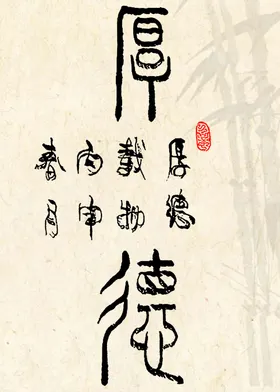 厚
德
厚德
载物
丙申
春月